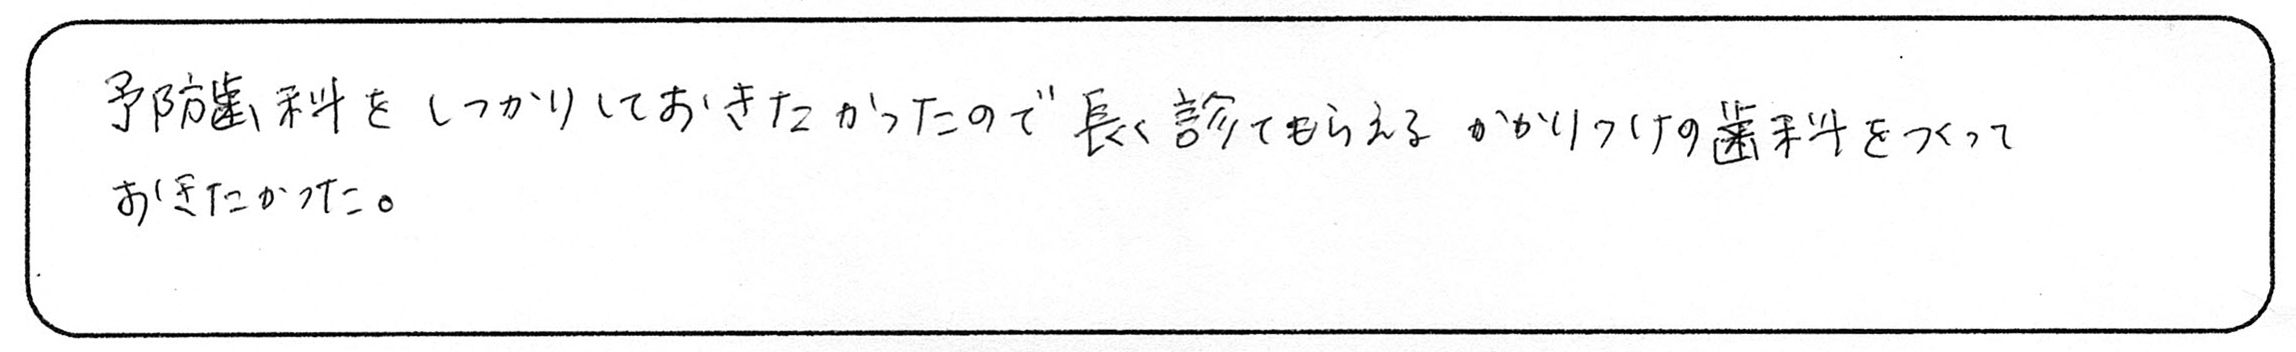 予防歯科をしっかりしておきたかったので長く診てもらえるかかりつけの歯科をつくって
おきたかった。